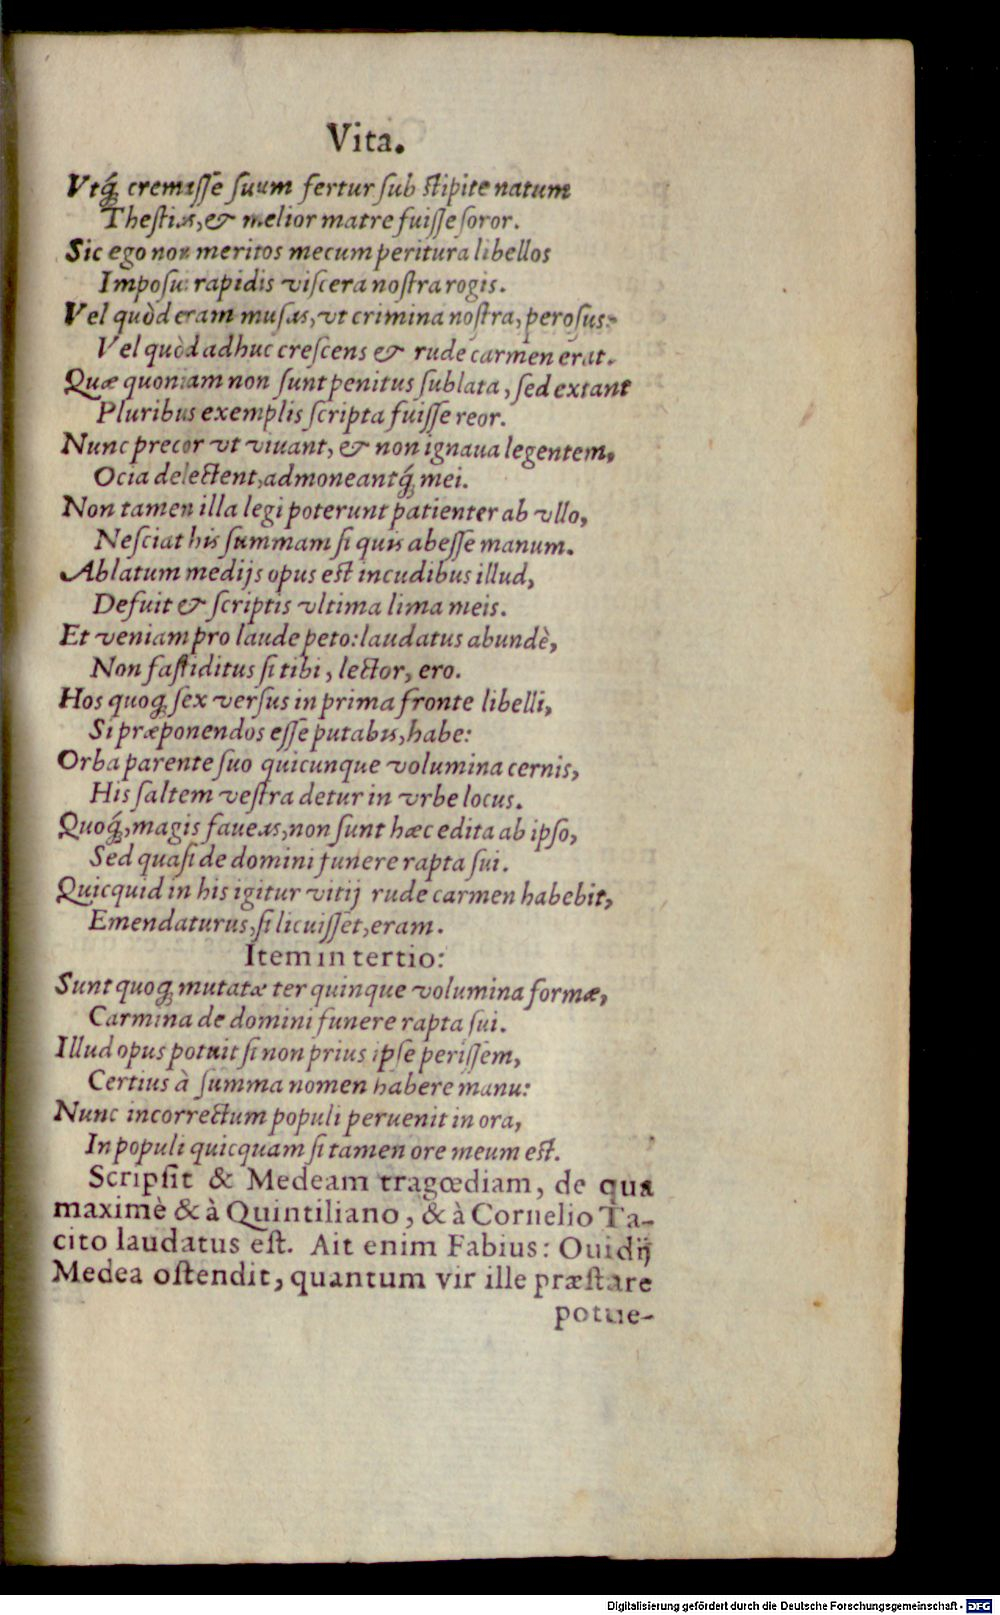 Vita.
Vtq́; cremasse suum fertur sub stipite natum
Thestias, & melior matre fuisse soror.
Sic ego non meritos mecum peritura libellos
Imposui rapidis viscera nostra rogis.
Vel quòd eram musas, vt crimina nostra, perosus:
Vel quòd adhuc crescens & rude carmen erat.
Quæ quoniam non sunt penitus sublata, sed extant
Pluribus exemplis scripta fuisse reor.
Nunc precor vt viuant, & non ignaua legentem,
Ocia delectent, admoneantq́; mei.
Non tamen illa legi poterunt patienter ab vllo,
Nesciat his summam si quis abesse manum.
Ablatum medijs opus est incudibus illud,
Defuit & scriptis vltima lima meis.
Et veniam pro laude peto: laudatus abundè,
Non fastiditus si tibi, lector, ero.
Hos quoq; sex versus in prima fronte libelli,
Si præponendos esse putabis, habe:
Orba parente suo quicunque volumina cernis,
His saltem vestra detur in vrbe locus.
Quoq́;, magis faueas, non sunt hæc edita ab ipso,
Sed quasi de domini funere rapta sui.
Quicquid in his igitur vitij rude carmen habebit,
Emendaturus, si licuisset, eram.
Item in tertio:
Sunt quoq; mutatæ ter quinque volumina formæ,
Carmina de domini funere rapta sui.
Illud opus potuit si non prius ipse perissem,
Certius à summa nomen habere manu:
Nunc incorrectum populi peruenit in ora,
In populi quicquam si tamen ore meum est.
Scripsit & Medeam tragœdiam, de qua
maximè & à Quintiliano, & à Cornelio Ta-
cito laudatus est. Ait enim Fabius: Ouidij
Medea ostendit, quantum vir ille præstare
potue-
Digitalisierung gefördert durch die Deutsche Forschungsgemeinschaft - DFG